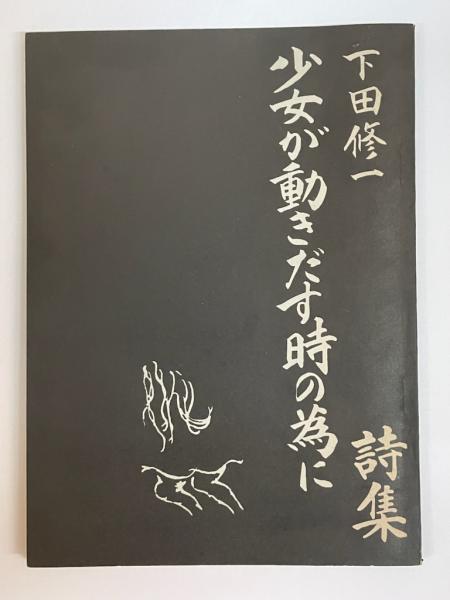 下田修一
詩集
少女が動きだす時の為に